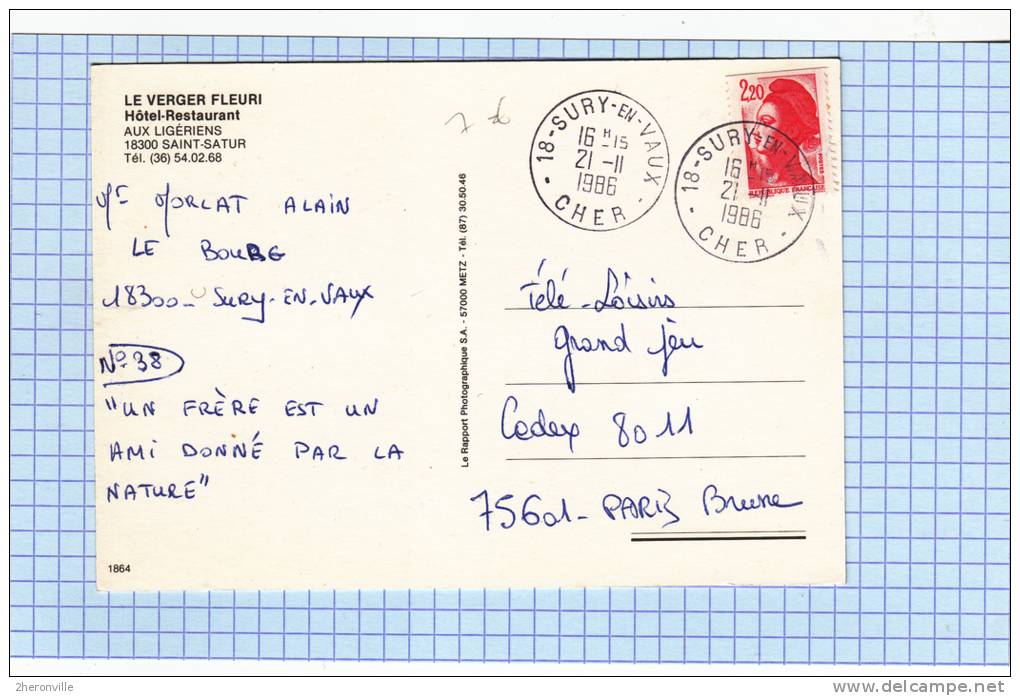 LE VERGER FLEURI
Hôtel-Restaurant
AUX LIGÉRIENS
18300 SAINT-SATUR
Tél. (36) 54.02.68
Mr MORLAT ALAIN
LE BOURG
18300 - SURY-EN-VAUX
No 38
"UN FRÈRE EST UN
AMI DONNÉ PAR LA
NATURE"
1864
Le Rapport Photographique S.A. - 57000 METZ - Tél. (87) 30.50.46
18-SURY-EN-VAUX
16 H 15
21 -11
1986
- CHER -
2,20
POSTES
REPUBLIQUE FRANÇAISE
18-SURY-EN-VAUX
16 H 15
21 -11
1986
- CHER -
Télé-Loisirs
grand jeu
Cedex 8011
75601 - PARIS Brune
2heronville
delcampe.net